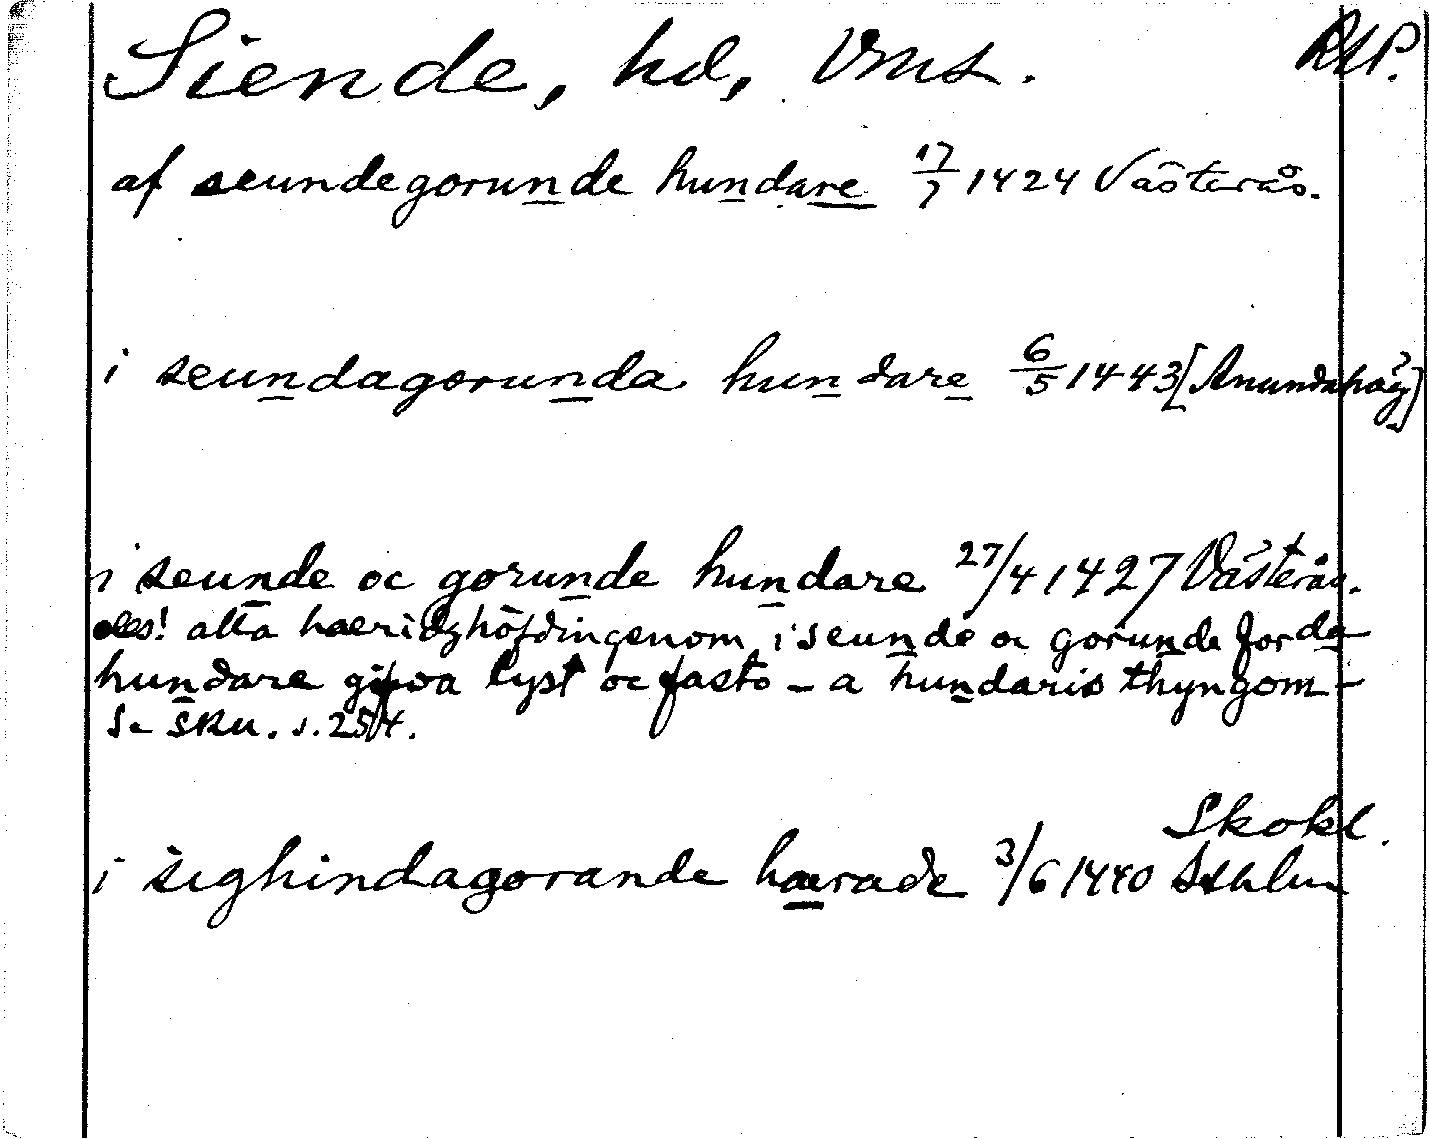 Siende, hd, Vms. RAP.
af seundegorunde hundare 17/7 1424 Västerås.
i seundagorunda hundare 6/5 1443 [Anundahög]
i seunde oc gorunde hundare 27/4 1427 Västerås.
obs! alla haeridzhöfdingenom i seunde oc gorunde forda
hundare lyst oc fasto – a hundaris thyngom –
Se SRU. s. 254.
Skokl.
i sighindagorande haerade 3/6 1440 Sthlm